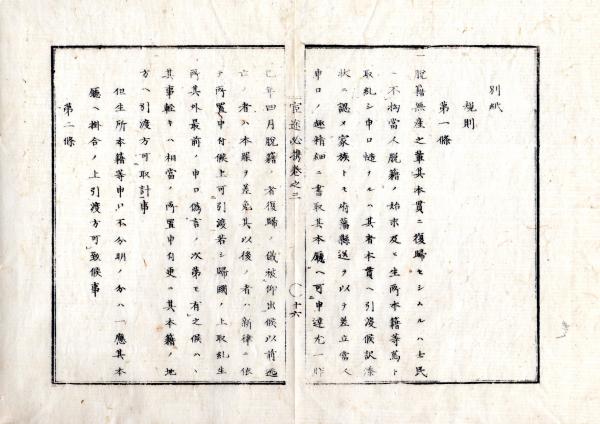 別紙
規則
第一條
一脱籍無産之輩其本貫ニ復歸セシムルハ士民
ニ不拘當人脱籍ノ始末及ヒ生所本籍等篤ト
取糺シ申口慥ナルハ其者本貫ヘ引渡候訳
状ニ認メ家族トモ府藩縣送ヲ以テ差立當人
申口ノ趣精細ニ書取其本廳ヘ可申達尤一昨
官途必携巻之三
十六
巳年四月脱籍ノ者復歸ノ儀被仰出候以前逃
亡ノ者ハ本服ヲ差免其以後ノ者ハ新律ニ依
テ所置申付候上可引渡若シ歸國ノ上取糺生
所其外最前ノ申口偽言ノ次第モ有之候ハヽ
其事輕キハ相當ノ所置申付更ニ其本籍ノ地
方ヘ引渡方可取計事
但生所本籍等申口不分明ノ分ハ一應其本
廳ヘ掛合ノ上引渡方可致候事
第二條